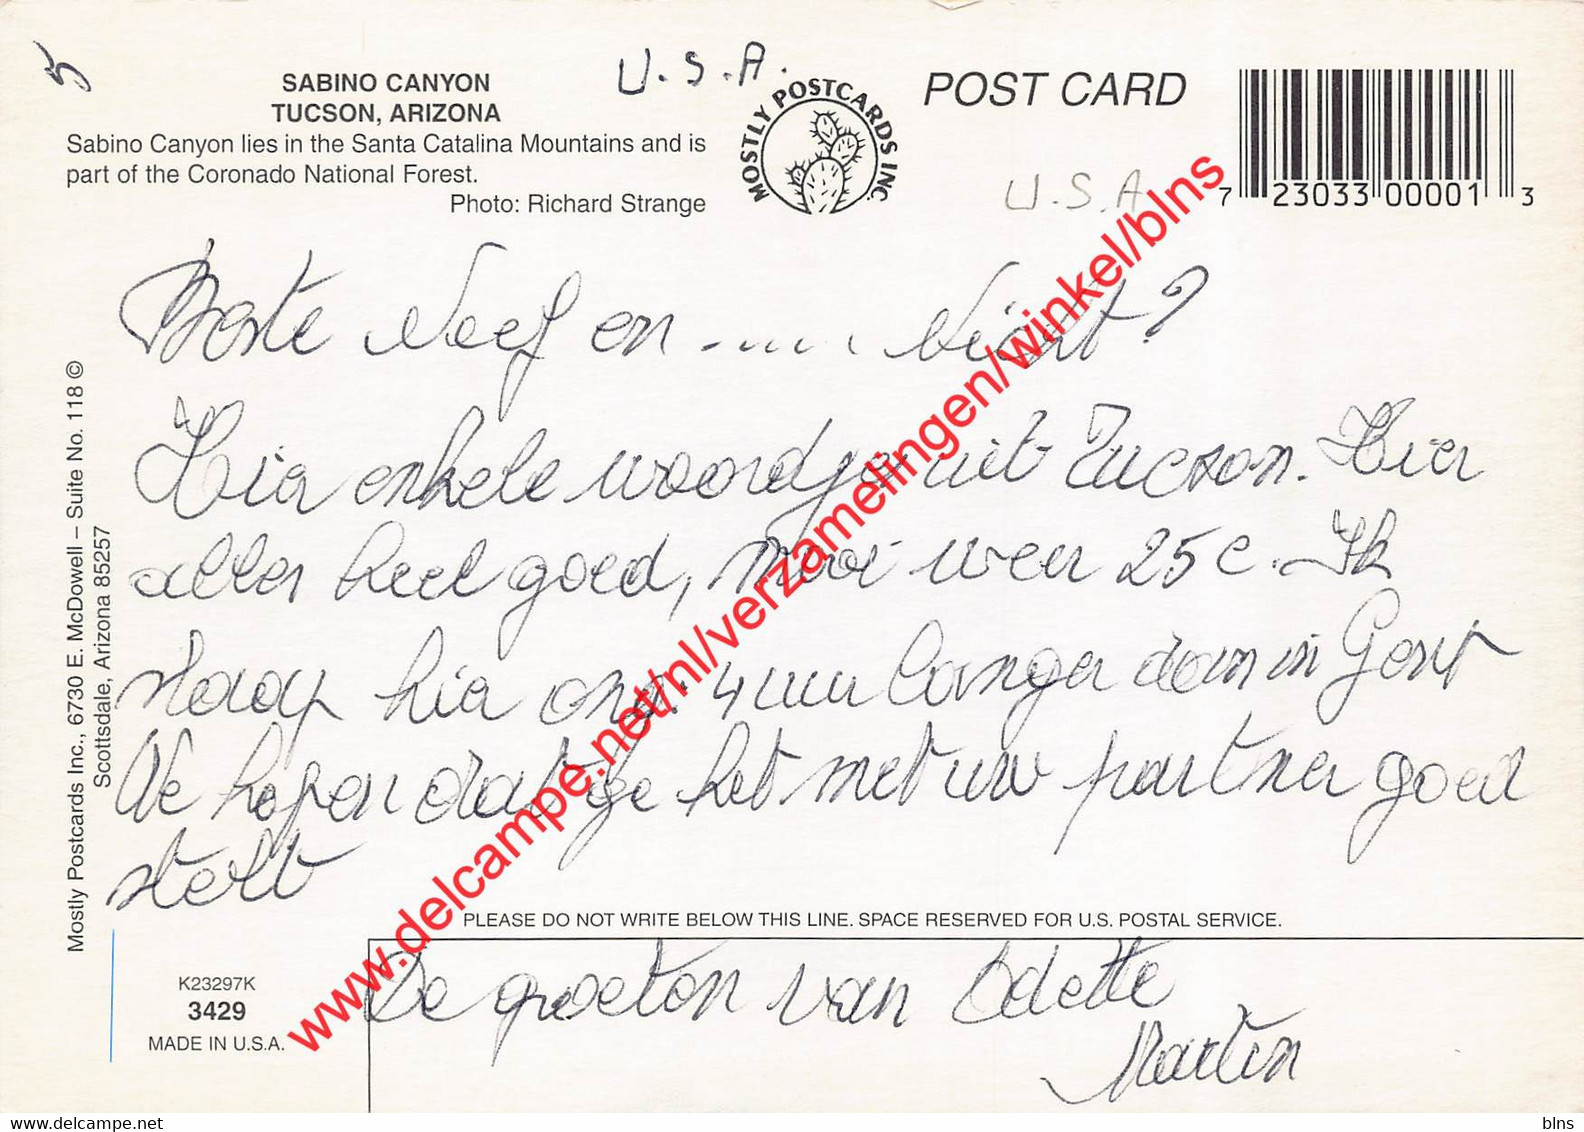 5
U.S.A.
SABINO CANYON
TUCSON, ARIZONA
Sabino Canyon lies in the Santa Catalina Mountains and is
part of the Coronado National Forest.
Photo: Richard Strange
MOSTLY POSTCARDS INC.
POST CARD
U.S.A.
7 23033 00001 3
Beste Neef en ..... Nicht?
Hier enkele woordjes uit Tucson. Hier
alles heel goed, mooi weer 25 c. Ik
slaap hier ong. 4 uur langer dan in Gent
We hopen dat ge het met uw partner goed
stelt
De groeten van Odette
Martin
PLEASE DO NOT WRITE BELOW THIS LINE. SPACE RESERVED FOR U.S. POSTAL SERVICE.
Mostly Postcards Inc., 6730 E. McDowell – Suite No. 118 ©
Scottsdale, Arizona 85257
K23297K
3429
MADE IN U.S.A.
www.delcampe.net/nl/verzamelingen/winkel/blns
Delcampe.net
blns